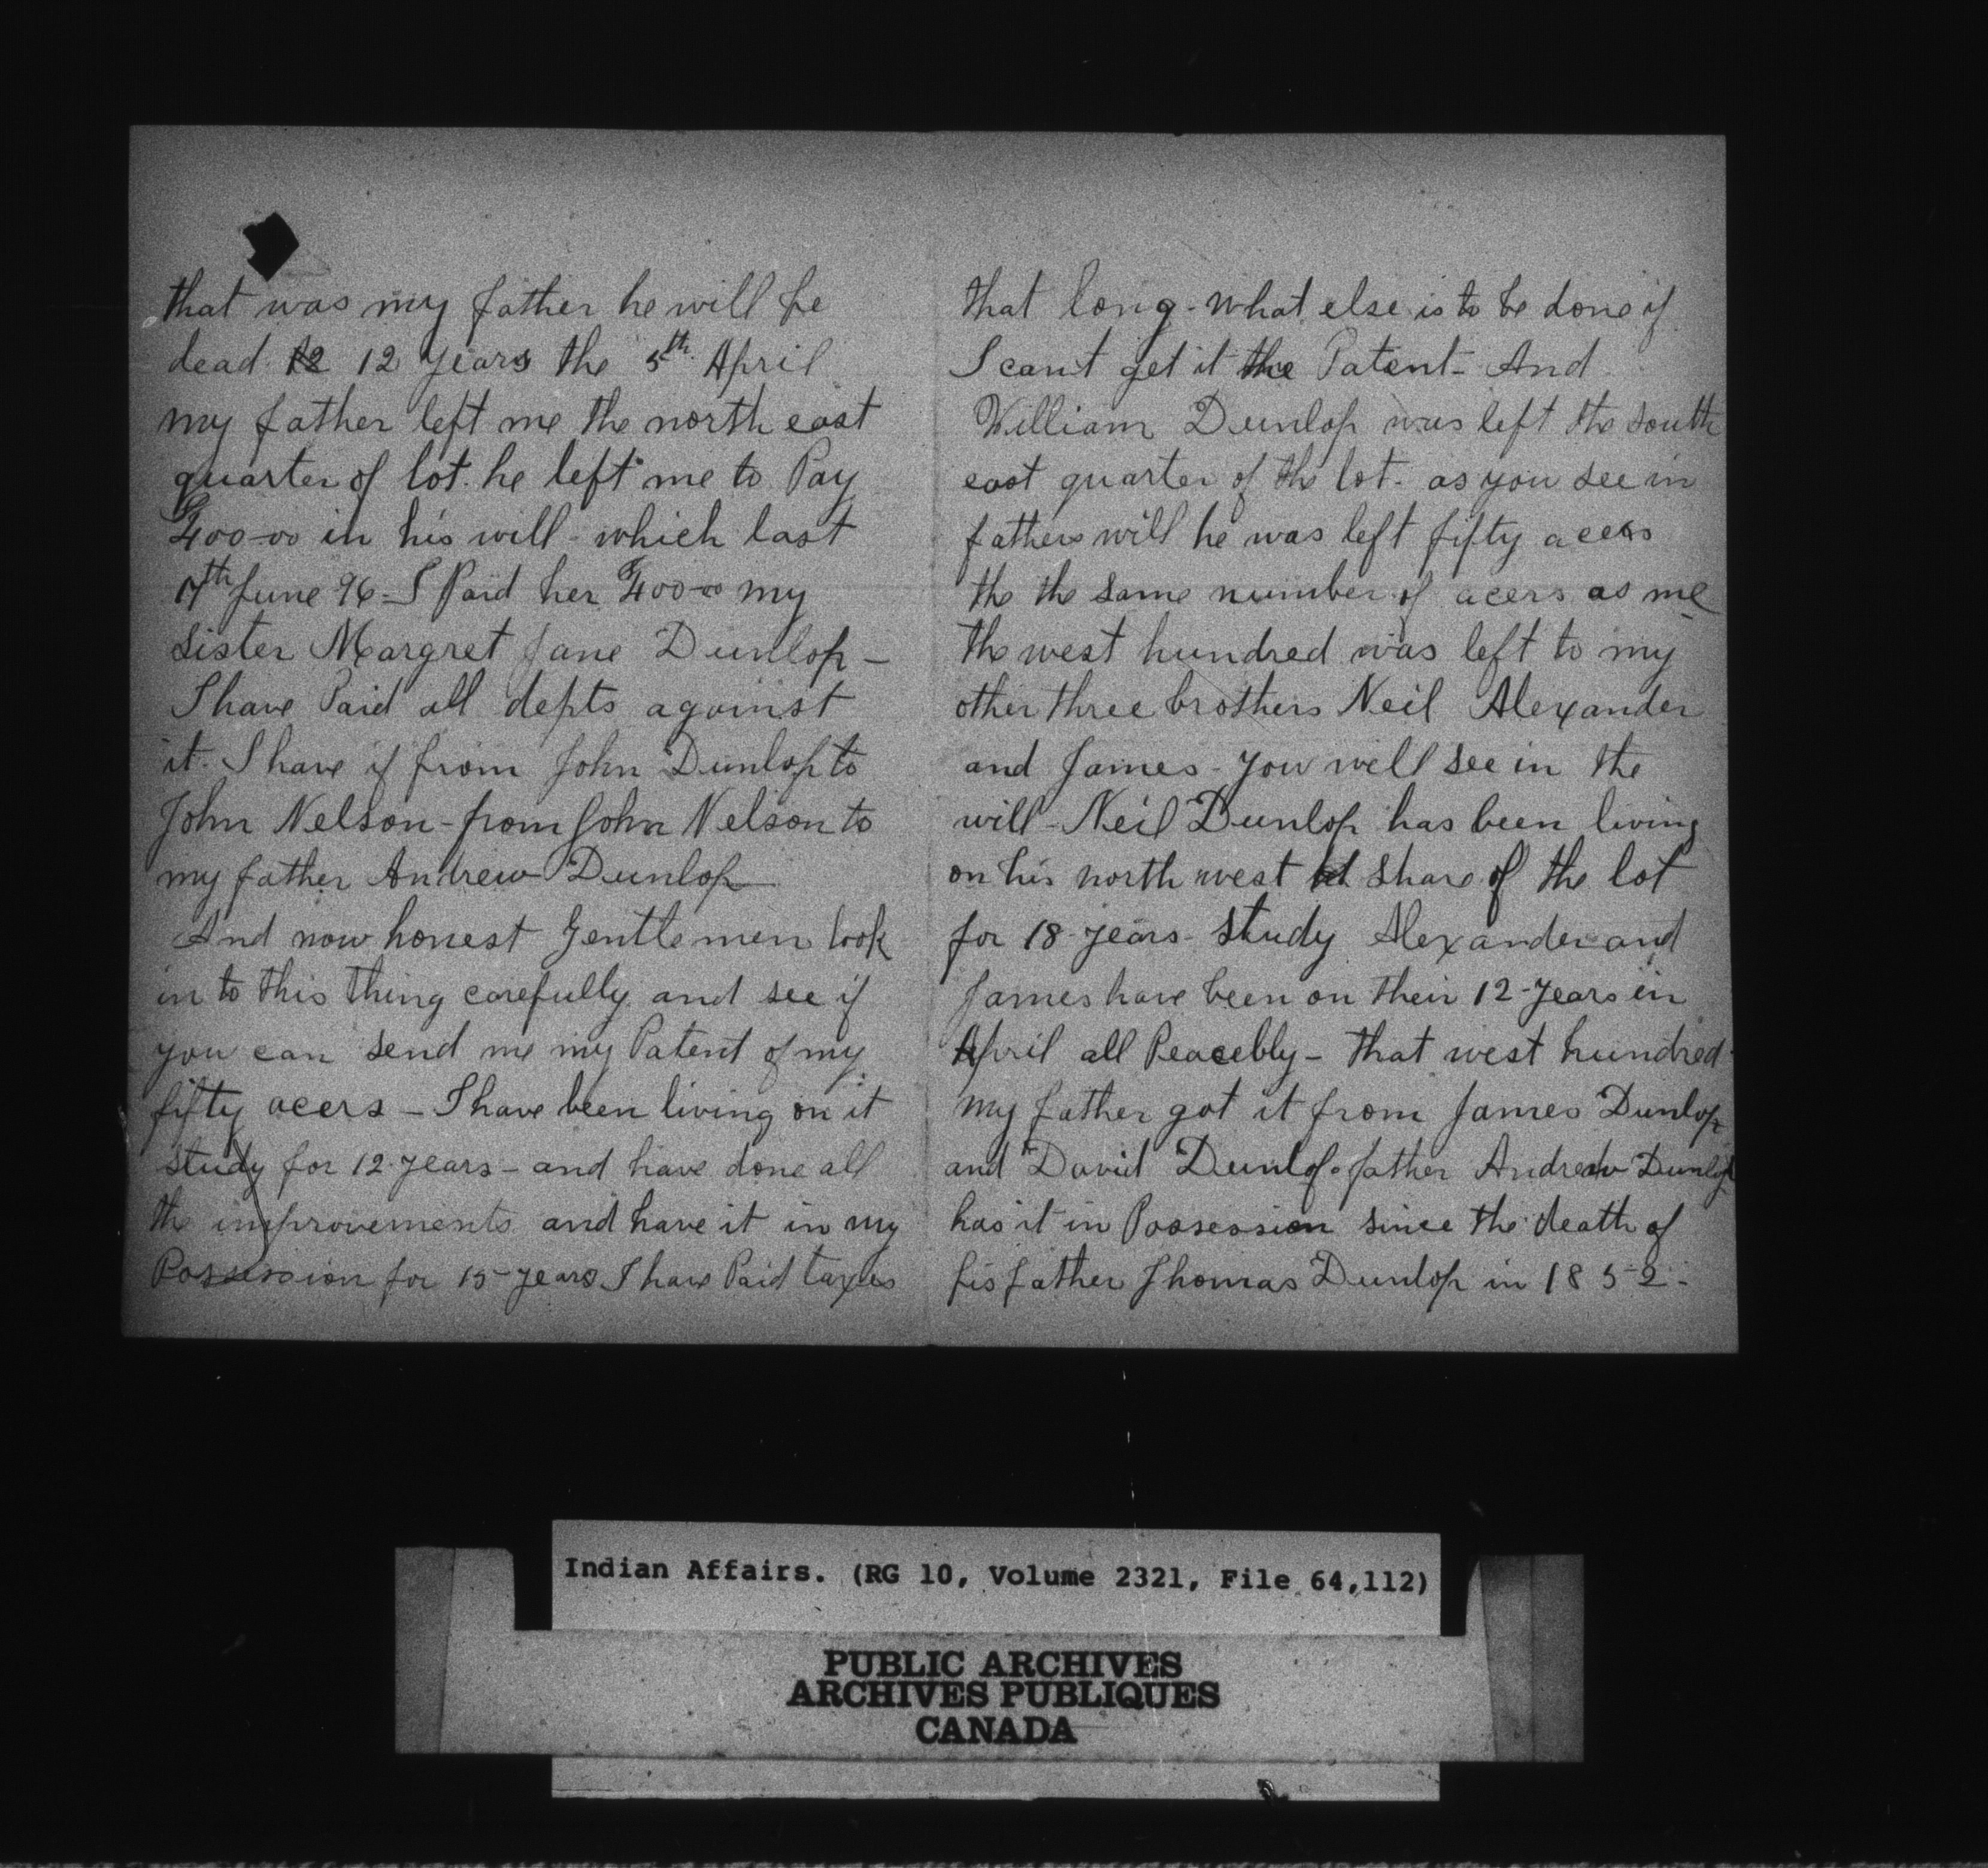 that was my father he will be
dead 12 12 years the 5th April
my father left me the north east
quarter of lot. he left me to Pay
$400-00 in his will - which last
17th June 96 - I Paid her $400-00 my
sister Margret Jane Dunlop -
I have Paid all depts against
it. I have if from John Dunlop to
John Nelson - from John Nelson to
my father Andrew Dunlop
And now honest Gentlemen look
in to this thing carefully and see if
you can send me my Patent of my
fifty acers - I have been living on it
study for 12 years - and have done all
the improvements and have it in my
Possession for 15 years I have Paid taxes
that long - what else is to be done if
I cant get it the Patent - And
William Dunlop was left the south
east quarter of the lot - as you see in
fathers will he was left fifty acers
the the same number of acers as me
the west hundred was left to my
other three brothers Neil Alexander
and James - you well see in the
will - Neil Dunlop has been living
on his north west share of the lot
for 18 years - study Alexander and
James have been on their 12 years in
April all Peacebly - that west hundred
my father got it from James Dunlop
and David Dunlop - father Andrew Dunlop
has it in Possession since the death of
his father Thomas Dunlop in 1852 -
Indian Affairs. (RG 10, Volume 2321, File 64,112)
PUBLIC ARCHIVES
ARCHIVES PUBLIQUES
CANADA